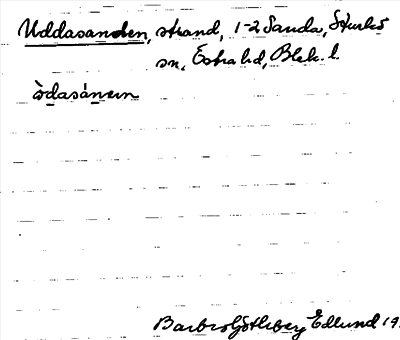 Uddasanden, strand, 1-2 Sanda, Sturkö
sn, Östra hd, Blek. l.
òdasánẹn
Barbro Götlberg Edlund 19